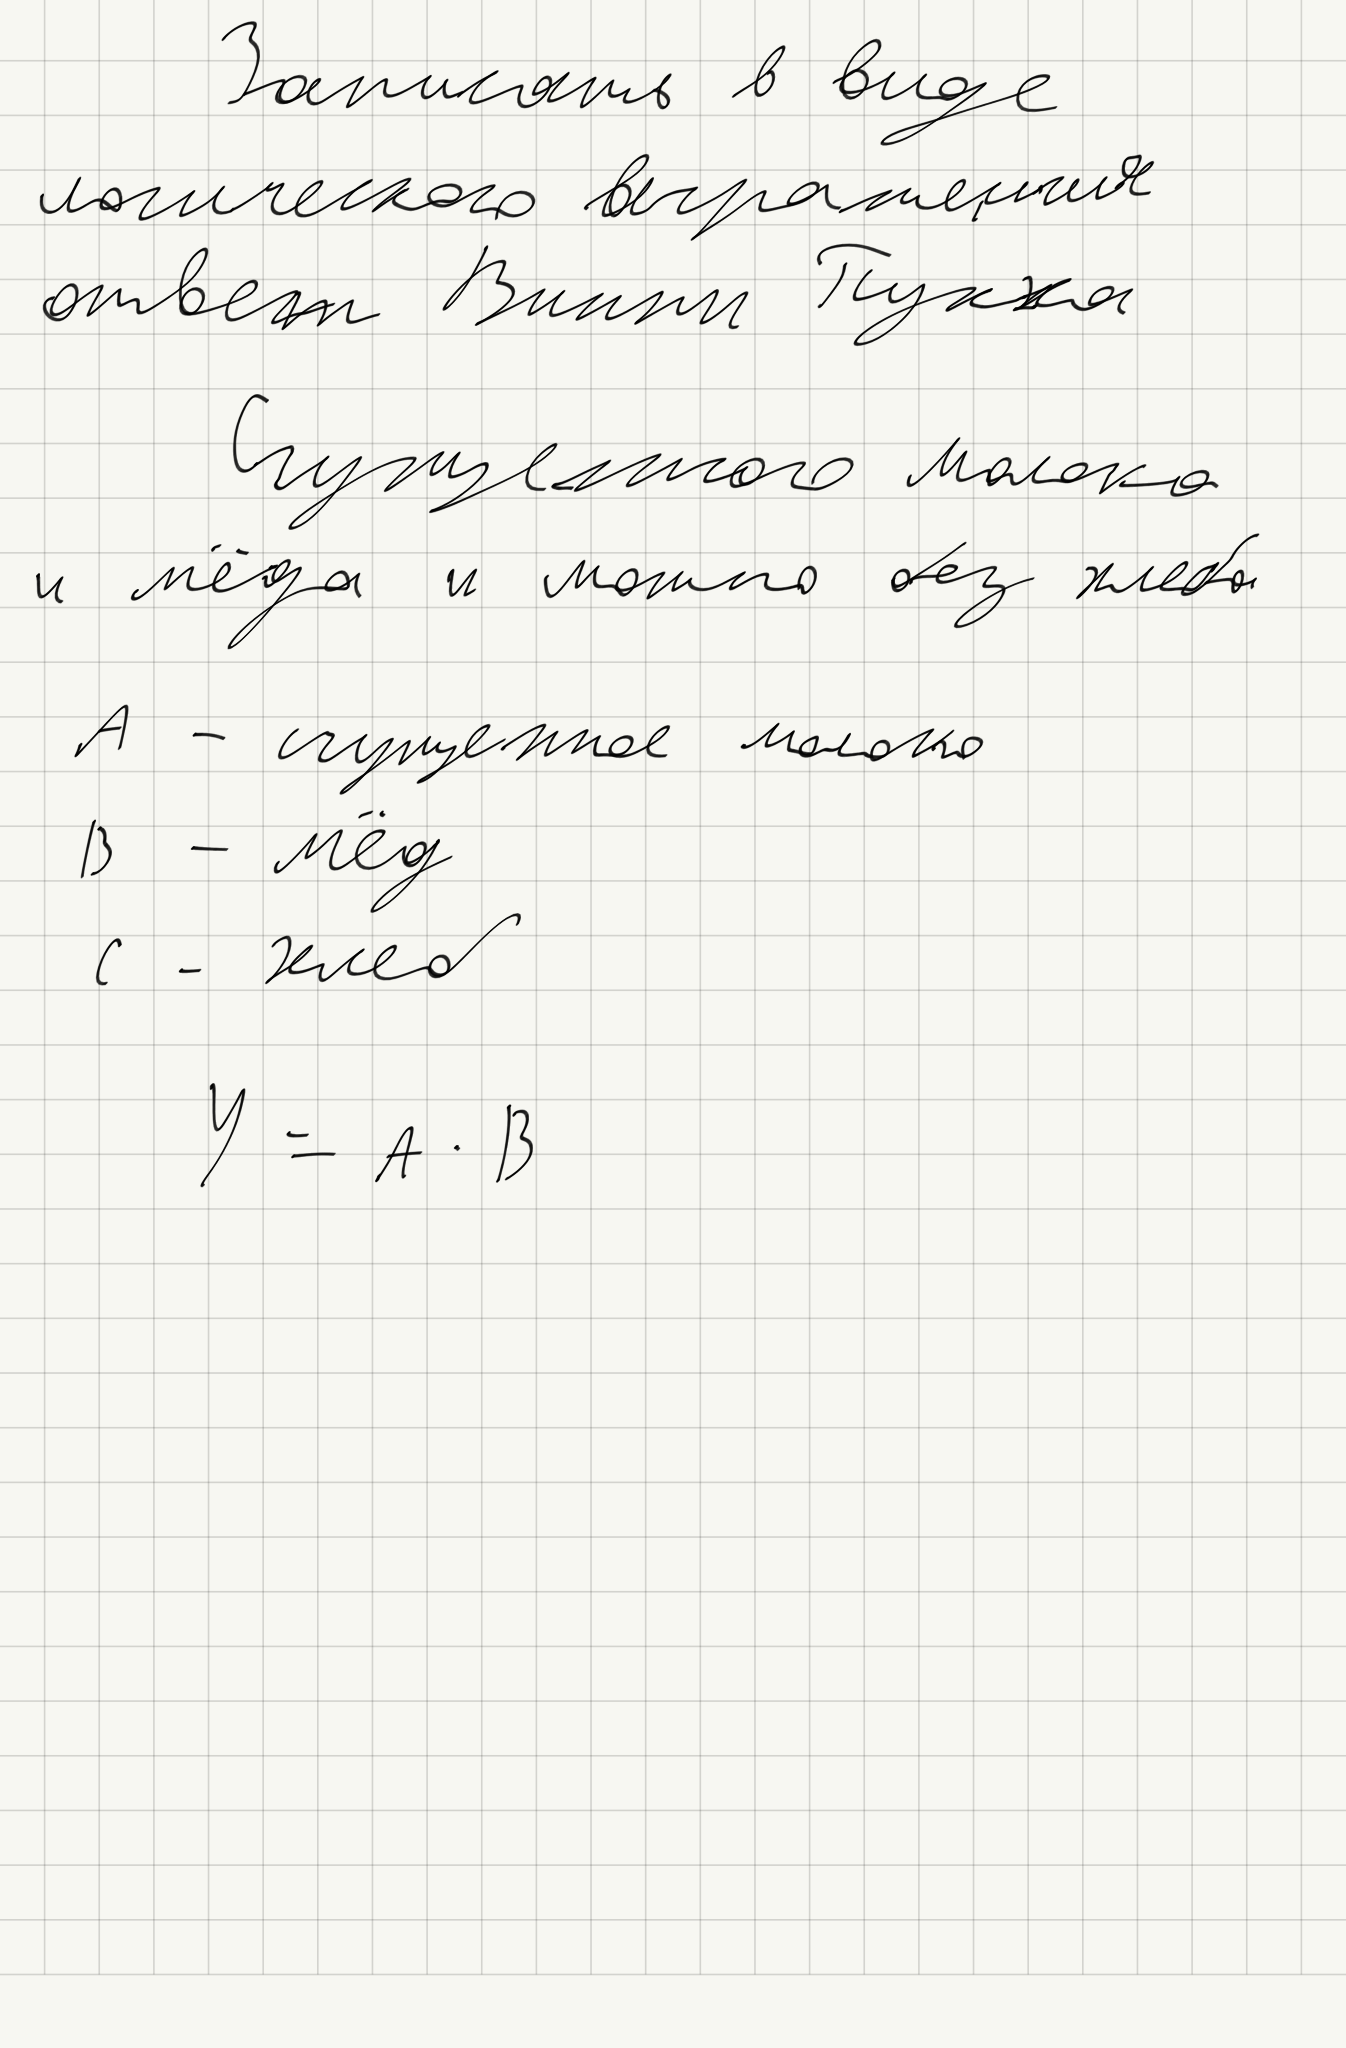 Записать в виде
логического выражения
ответ Винни Пуха
Сгущенного молока
и мёда и можно без хлеба
A - сгущенное молоко
B - мёд
C - хлеб
Y = A · B